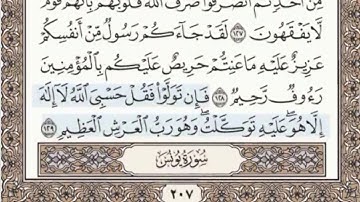 مِّنْ أَحَدٍ ثُمَّ ٱنصَرَفُوا۟ صَرَفَ ٱللَّهُ قُلُوبَهُم بِأَنَّهُمْ قَوْمٌ
لَّا يَفْقَهُونَ ١٢٧ لَقَدْ جَآءَكُمْ رَسُولٌ مِّنْ أَنفُسِكُمْ
عَزِيزٌ عَلَيْهِ مَا عَنِتُّمْ حَرِيصٌ عَلَيْكُم بِٱلْمُؤْمِنِينَ
رَءُوفٌ رَّحِيمٌ ١٢٨ فَإِن تَوَلَّوْا۟ فَقُلْ حَسْبِىَ ٱللَّهُ لَآ إِلَٰهَ
إِلَّا هُوَ عَلَيْهِ تَوَكَّلْتُ وَهُوَ رَبُّ ٱلْعَرْشِ ٱلْعَظِيمِ ١٢٩
سُورَةُ يُونُسَ
٢٠٧